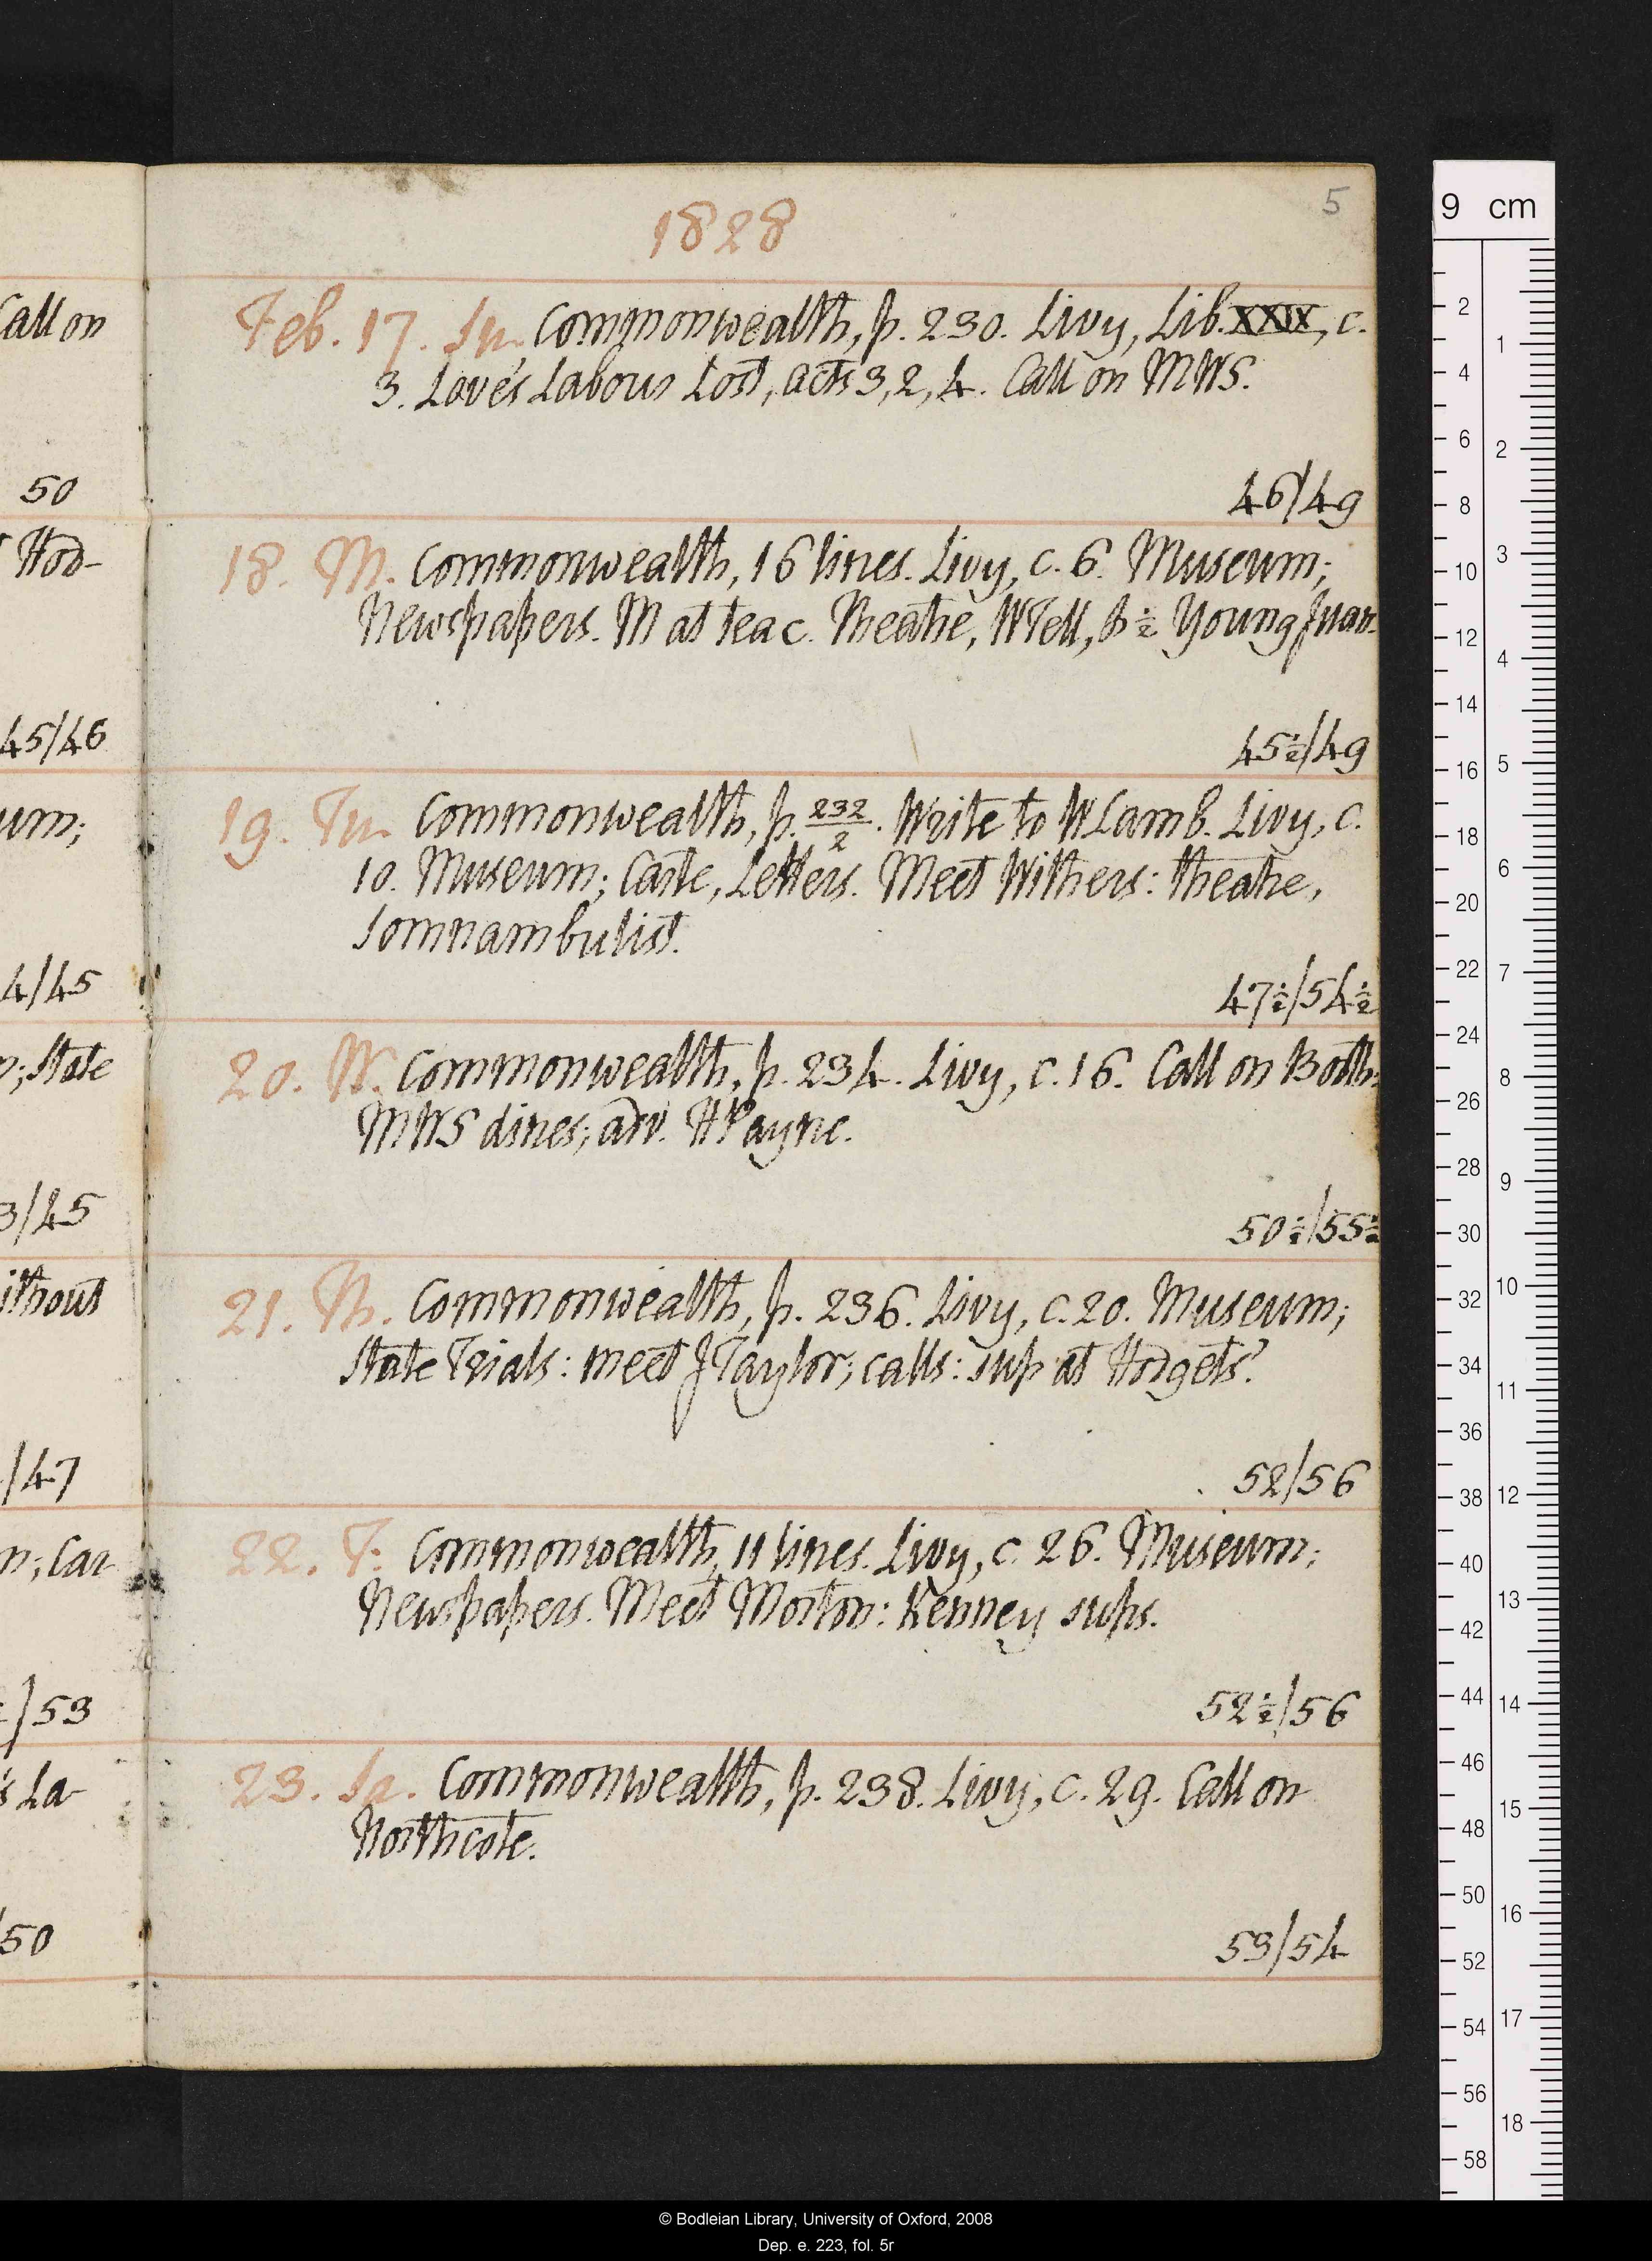 5
1828
Call on
50
Hod-
45/46
um;
4/45
n; State
3/45
ithout
/47
n; Car
/53
s La-
/50
Feb. 17. Su. Commonwealth, p. 230. Livy, Lib. XXIX, c.
3. Love's Labour Lost, acts 3, 2, 4. Call on MWS.
46/49
18. M. Commonwealth, 16 lines. Livy, c. 6. Museum;
Newspapers. M at tea c. Theatre, WTell, & ½ Young Juan.
45½/49
19. Tu. Commonwealth, p. 232/2. Write to WLamb. Livy, c.
10. Museum; Carte, Letters. Meet Withers: theatre,
Somnambulist.
47½/54½
20. W. Commonwealth, p. 234. Livy, c. 16. Call on Booth:
MWS dines; adv. HPayne.
50½/55½
21. Th. Commonwealth, p. 236. Livy, c. 20. Museum;
State Trials: meet JTaylor; calls: sup at Hodgets'.
52/56
22. F. Commonwealth, 11 lines. Livy, c. 26. Museum;
Newspapers. Meet Morton: Kenney sups.
52½/56
23. Sa. Commonwealth, p. 238. Livy, c. 29. Call on
Northcote.
53/54
9 cm
2
4
6
8
10
12
14
16
18
20
22
24
26
28
30
32
34
36
38
40
42
44
46
48
50
52
54
56
58
1
2
3
4
5
6
7
8
9
10
11
12
13
14
15
16
17
18
© Bodleian Library, University of Oxford, 2008
Dep. e. 223, fol. 5r